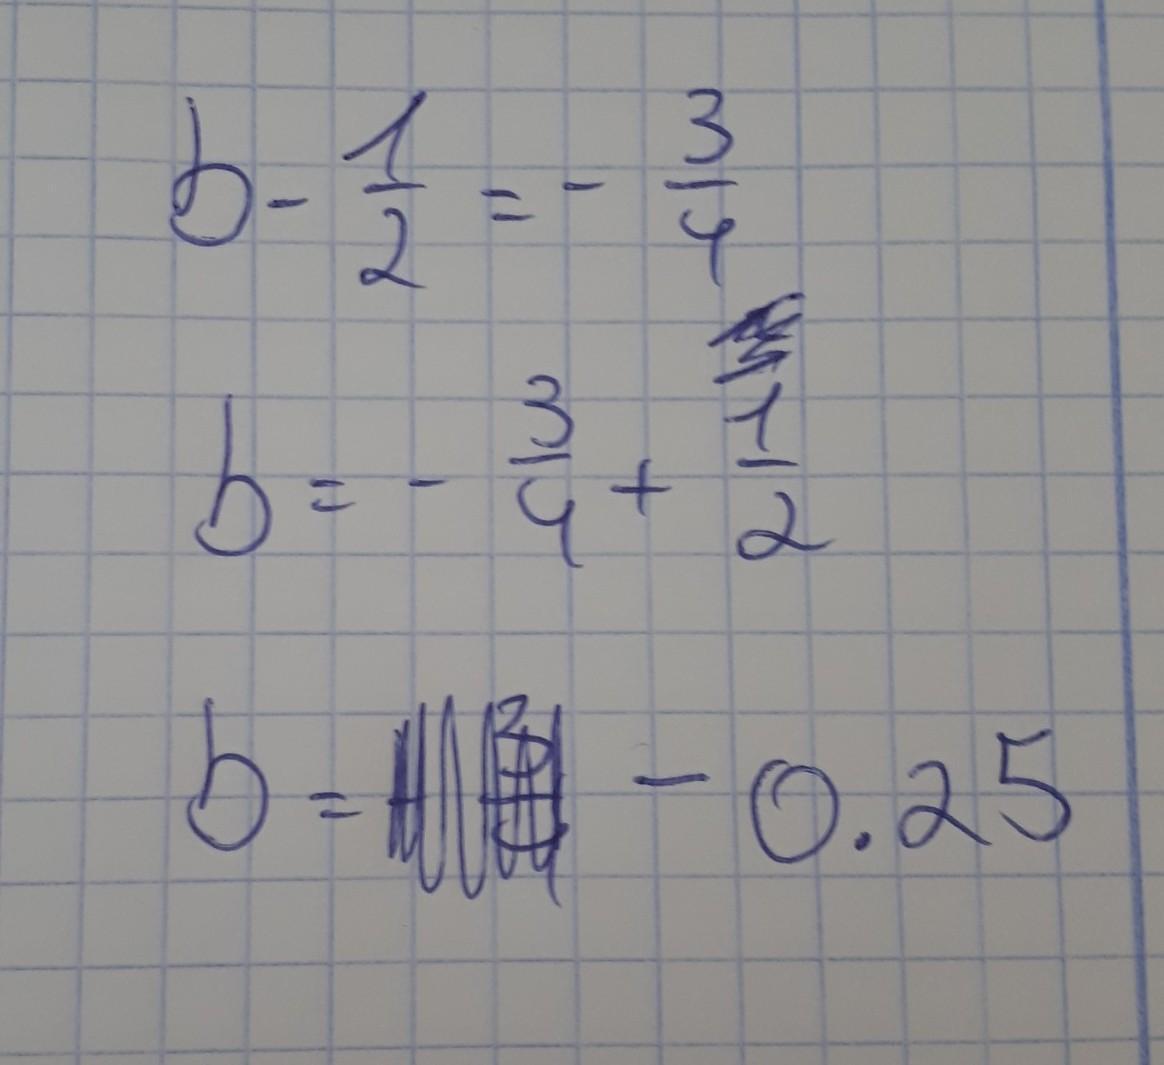 b - 1/2 = - 3/4
b = - 3/4 + 1/2
b = - 0.25